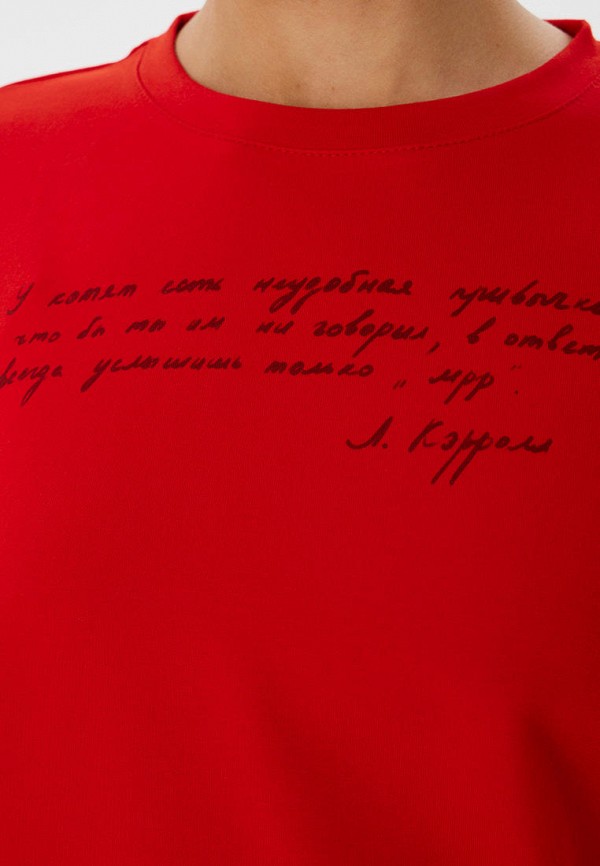 У котят есть неудобная привычка
что бы ты им ни говорил, в ответ
всегда услышишь только „мрр".
Л. Кэрролл